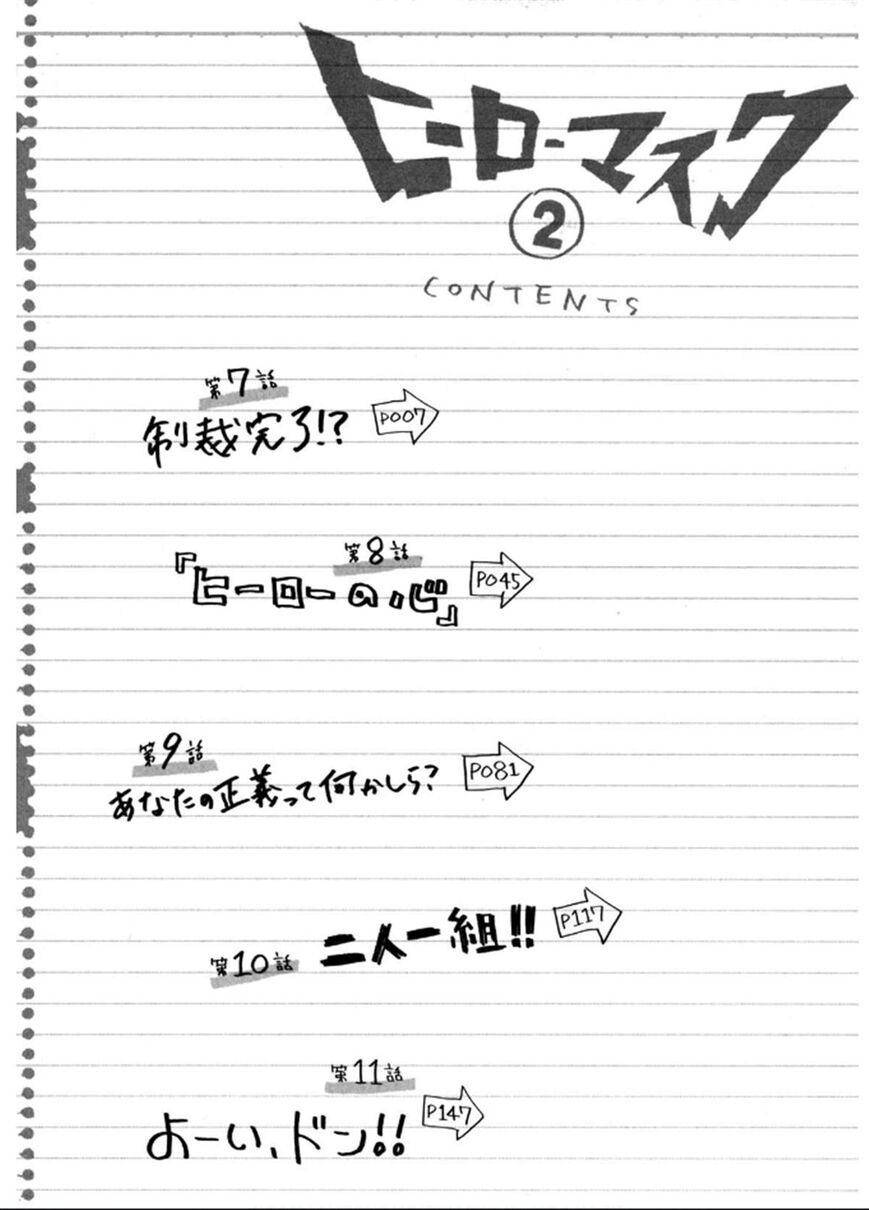 ヒーローマスク
②
CONTENTS
第7話
制裁完了!?
P007
第8話
『ヒーローのいじ』
P045
第9話
あなたの正義って何かしら?
P081
第10話
二人一組!!
P117
第11話
よーい、ドン!!
P147